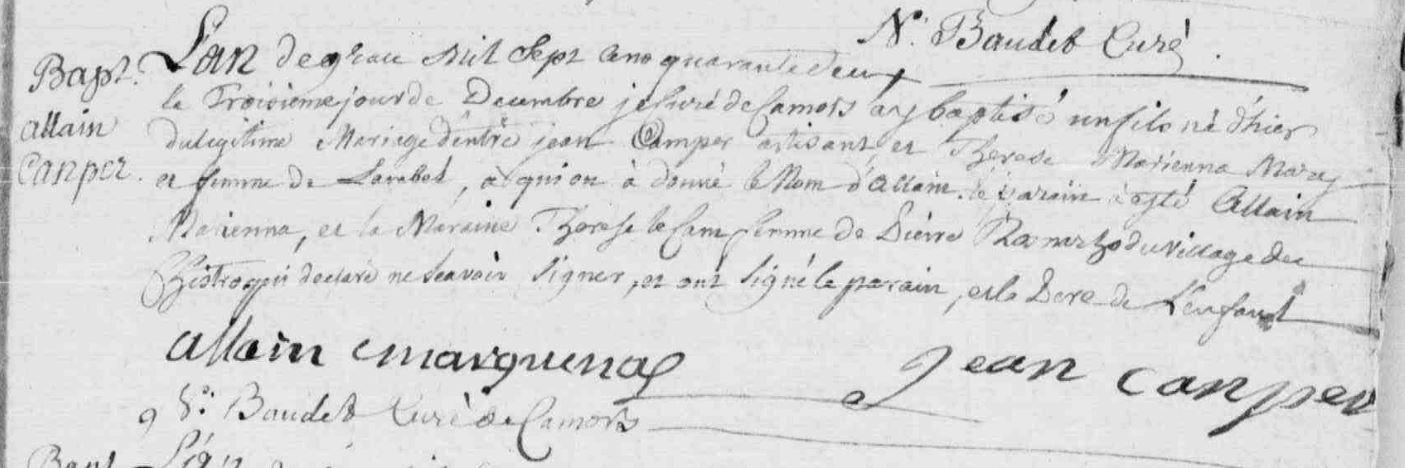 N. Baudet Curé.
Bapt.
allain
Canper.
L'an de grace Mil Sept cens quarante deux
le Troisieme jour de Decembre je Curé de Camors ay baptisé un fils né d'hier
du legitime Mariage d'entre jean Camper artisant et Therese Marienna Mary
et femme de Larabot, a qui on à donné le Nom d'Allain. le Parain à esté Allain
Marienna, et la Maraine Therese le Cam femme de Pierre du village de
qui declaré ne sçavoir signer, et ont signé le parain, et le Pere de L'enfant
allain marquena
jean canper
N. Baudet Curé de Camors
Bapt. L'an